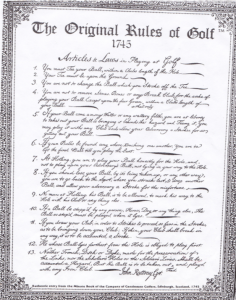 The Original Rules of Golf
1745
Articles & Laws in Playing at Golf
1. You must Tee your Ball, within a Club's length of the Hole
2. Your Tee must be upon the Ground
3. You are not to change the Ball which you Strike off the Tee
4. You are not to remove Stones, Bones or any Break Club for the sake of
playing your Ball, Except upon the fair Green, within a Club's length of
5. If your Ball come among Water, or any watery filth, you are at liberty to
take out your Ball & bringing it behind the hazard and Teeing it, you
may play it with any Club and allow your Adversary a Stroke for so
getting out your Ball
6. If your Balls be found any where touching one another You are to
lift the first Ball, till you play the last
7. At Holling, you are to play your Ball honestly for the Hole, and
not to play upon your Adversary's Ball, not lying in your way to the Hole
8. If you should lose your Ball, by its being taken up, or any other way,
you are to go back to the Spot, where you struck last & drop another
Ball and allow your adversary a Stroke for the misfortune
9. No man at Holling his Ball, is to be allowed, to mark his way to the
Hole with his Club or any thing else
10. If a Ball be stopp'd by any person, Horse, Dog or any thing else, The
Ball so stopp'd must be played where it lyes
11. If you draw your Club, in order to Strike & proceed so far in the Stroke, as
to be bringing down your Club. If then, your Club shall break in
any way, it is to be accounted a Stroke
12. He whose Ball lyes farthest from the Hole is obliged to play first
13. Neither Trench, Ditch or Dyke, made for the preservation of
the Links, nor the Scholars' Holes or the Soldiers' Lines, Shall be
accounted a Hazard, But the Ball is to be taken out, Teed and played
with any Iron Club